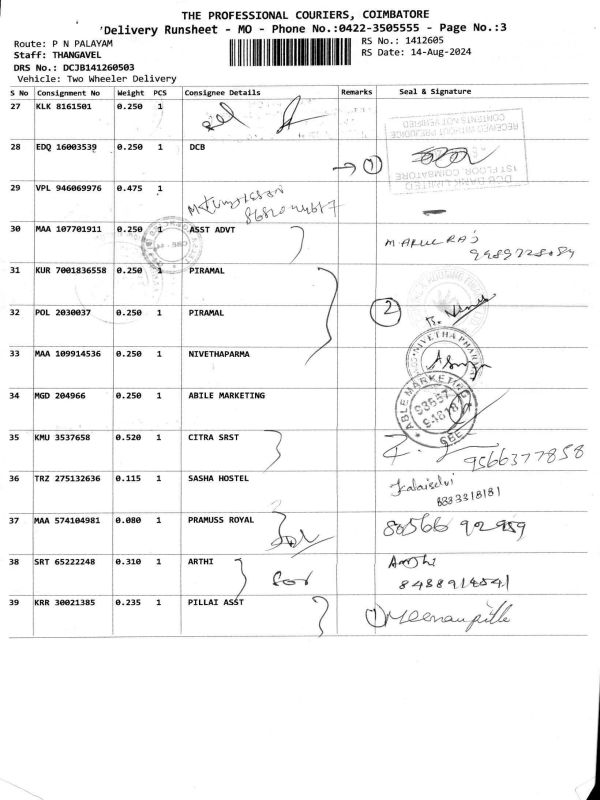 THE PROFESSIONAL COURIERS, COIMBATORE
Delivery Runsheet - MO - Phone No.:0422-3505555 - Page No.:3
Route: P N PALAYAM
RS No.: 1412605
Staff: THANGAVEL
RS Date: 14-Aug-2024
DRS No.: DCJB141260503
Vehicle: Two Wheeler Delivery
S No Consignment No Weight PCS Consignee Details Remarks Seal & Signature
27 KLK 8161501 0.250 1
RECEIVED WITHOUT PREJUDICE
CONTENTS NOT VERIFIED
28 EDQ 16003539 0.250 1 DCB
1
DCB BANK LIMITED
1ST FLOOR, COIMBATORE
29 VPL 946069976 0.475 1
30 MAA 107701911 0.250 1 ASST ADVT
31 KUR 7001836558 0.250 1 PIRAMAL
32 POL 2030037 0.250 1 PIRAMAL
2
33 MAA 109914536 0.250 1 NIVETHAPARMA
NIVETHA PHARMA
34 MGD 204966 0.250 1 ABILE MARKETING
ABLE MARKETING
93657
94818
CBE
35 KMU 3537658 0.520 1 CITRA SRST
9566377858
36 TRZ 275132636 0.115 1 SASHA HOSTEL
Kalaiselvi
8883318181
37 MAA 574104981 0.080 1 PRAMUSS ROYAL
80566 92959
38 SRT 65222248 0.310 1 ARTHI
Arthi
39 KRR 30021385 0.235 1 PILLAI ASST
1